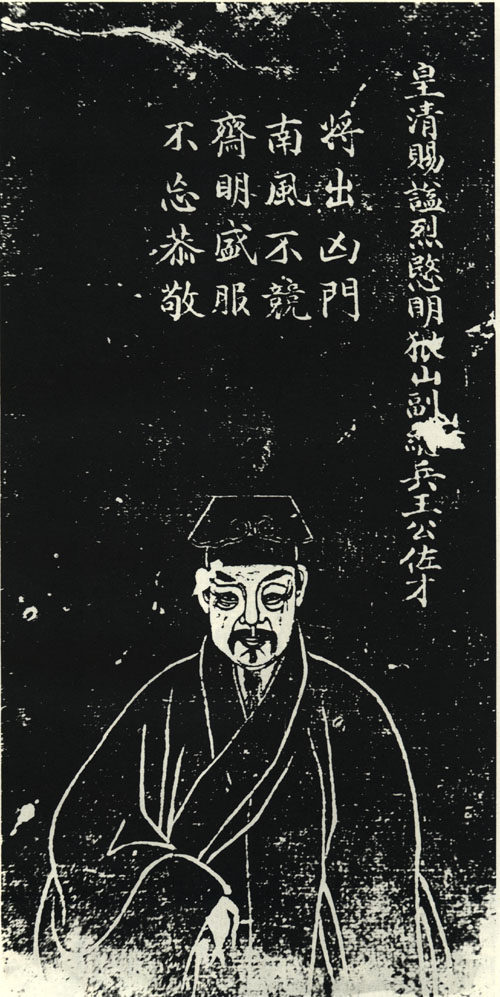 皇清賜謚烈愍明狼山副總兵王公佐才
將出凶門
南風不競
齋明盛服
不忘恭敬